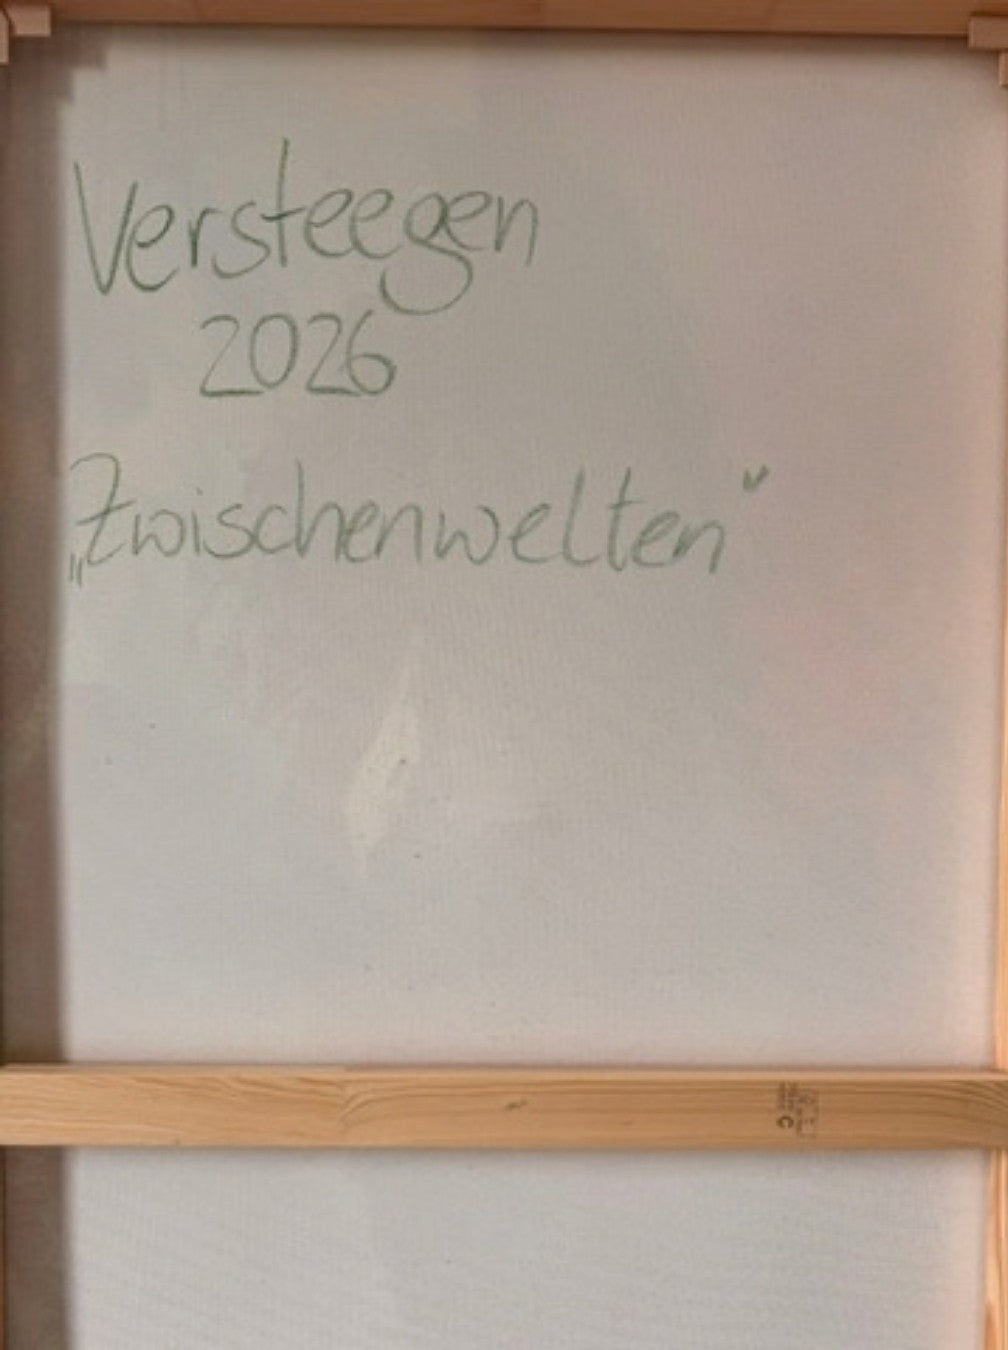 Versteegen
2026
„Zwischenwelten“